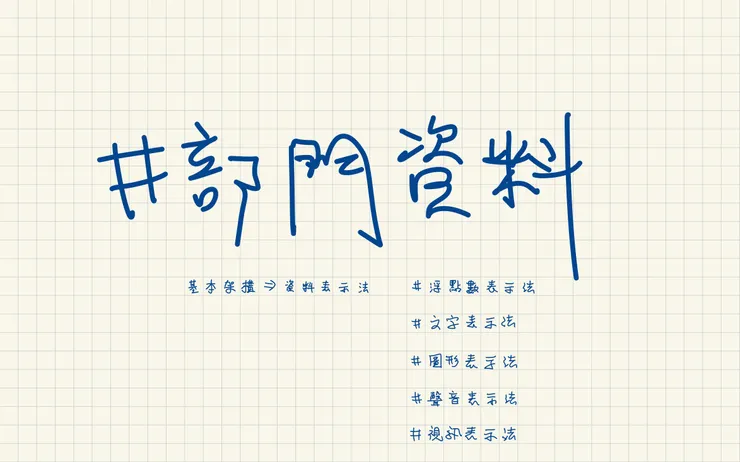 #部門資料
基本架構⇒資料表示法
#浮點數表示法
#文字表示法
#圖形表示法
#聲音表示法
#視訊表示法